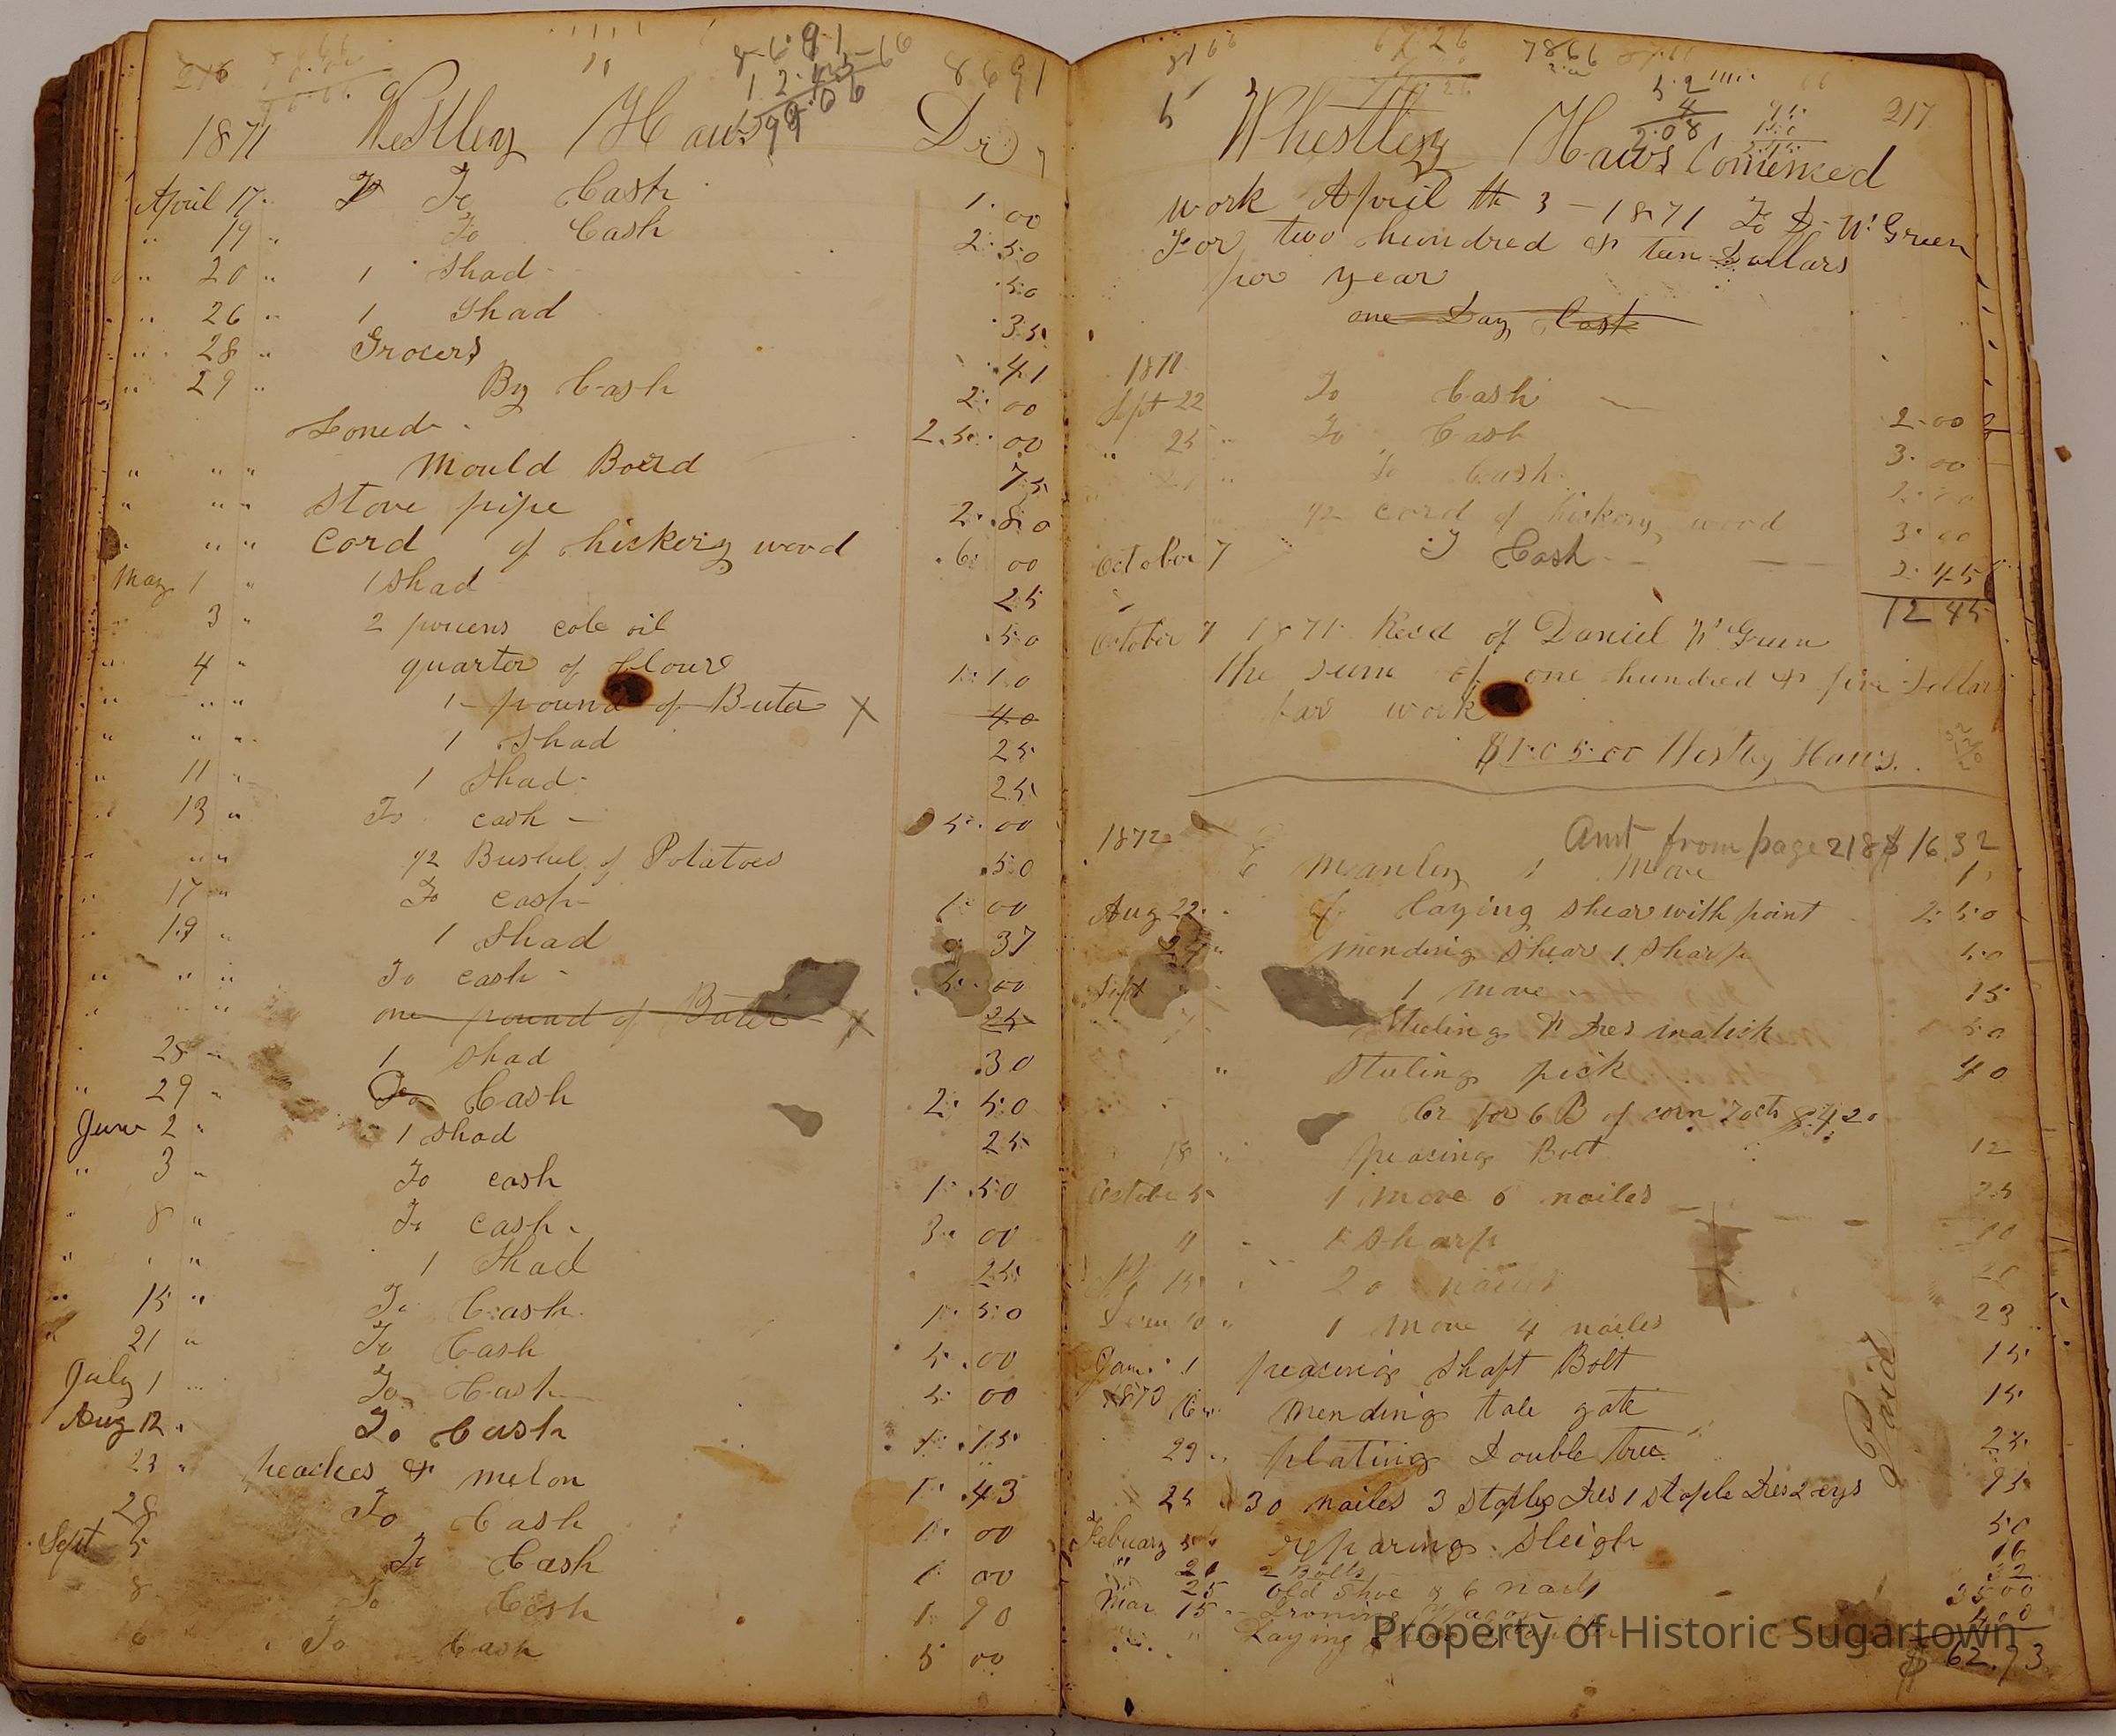 216
8691
1871 Westley Haws Dr
April 17 To Cash 1.00
" 19 " To Cash 2.50
" 20 " 1 Shad .50
" 26 " 1 Shad .35
" 28 " Grocers .41
" 29 " By Cash 2.00
Loned 25.00
" " " Mould Board 75
" " " Stove pipe 2.80
" " " Cord of hickery wood 6.00
May 1 " 1 Shad 25
3 " 2 cole oil .50
" 4 " quarter of flour 1.10
" " " 1 pound of Buter X 40
" " " 1 Shad 25
" 11 " 1 Shad 25
" 13 " To cash 5.00
" " " 1/2 Bushel of Potatoes .50
" 17 " To cash 1.00
" 19 " 1 Shad 37
" " " To cash 5.00
" " " one pound of Buter X 25
28 " 1 Shad .30
" 29 " To Cash 2.50
June 2 " 1 Shad 25
" 3 " To cash 1.50
" 8 " To cash 3.00
" " " 1 Shad 25
" 15 " To Cash 1.50
" 21 " To Cash 5.00
July 1 To Cash 5.00
Aug 12 To Cash 1.75
23 " peaches & melon 1.43
28 To Cash 1.00
Sept 5 To Cash 1.00
8 To Cash 1.90
To Cash 5.00
217
5 Whestley Haws Comenced
work April th 3 - 1871 To D. W. Green
For two hundred & ten Dollars
per year
one Day Cash
1871
Sept 22 To Cash 2.00
" 25 " To Cash 3.00
To Cash 2.00
1/2 cord of hickory wood 3.00
October 7 T Cash 2.45
12 45
October 7 1871 Recd of Daniel W Green
the sum of one hundred & five Dollars
for work
$105.00 Westley Haws.
Amt from page 218 $16.32
1872
E Manley 1 Move 1
Aug 22 laying shear with point 2.50
24 " mending shear 1 sharp 50
Sept " 1 move 15
Steling & dres matick 50
" Steling pick 40
Cr for 6 B of corn 70cts $4.20
18 " peacing Bolt 12
October 5 1 move 6 nailes 25
11 1 sharp 10
15 20 nailes
10 " 1 move 4 nailes 23
Jan. 1 peacing shaft Bolt 15
1873 16 " mending tale gate 15
29 " plating Double tree 25
25 30 nailes 3 staples dres 1 staple dres 2 eys 95
February 5 " reparing sleigh 50
21 2 Bolts 16
25 old Shoe & 6 nails 32
Mar 15 " Ironing Wagon 35 00
" " Laying 4 00
$62.93
Paid
Property of Historic Sugartown